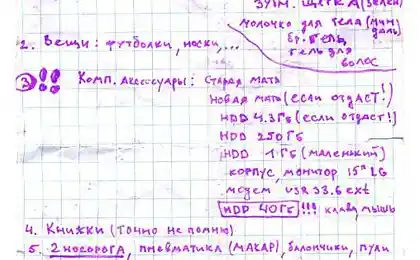 зубн. щетка (зелен)
молочко для тела (миндаль)
бр. гель,
гель для
волос
2. Вещи: футболки, носки,...
3 !! Комп. аксессуары: Старая мать
новая мать (если отдаст!)
HDD 4.3Гб (если отдаст!)
HDD 250Гб
HDD 1Гб (маленький)
корпус, монитор 15" LG
модем USR 33.6 ext
HDD 40Гб !!! клава, мышь
4. Книжки (точно не помню)
5. 2 носорога, пневматика (МАКАР), балончики, пули